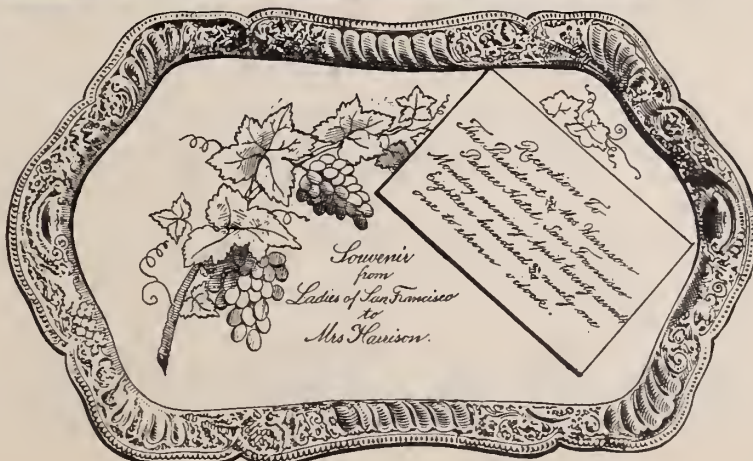 Souvenir
from
Ladies of San Francisco
to
Mrs Harrison.
Reception To
The President & Mrs Harrison
Palace Hotel San Francisco
Monday evening April twenty seventh
Eighteen hundred & ninety one
one to eleven o'clock.